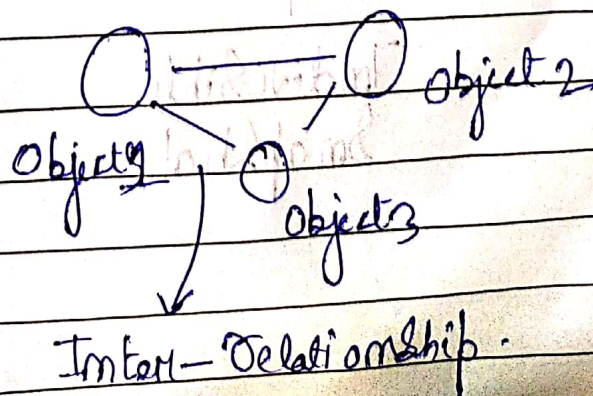 Object 2
Object 1
Object 3
Inter-relationship.